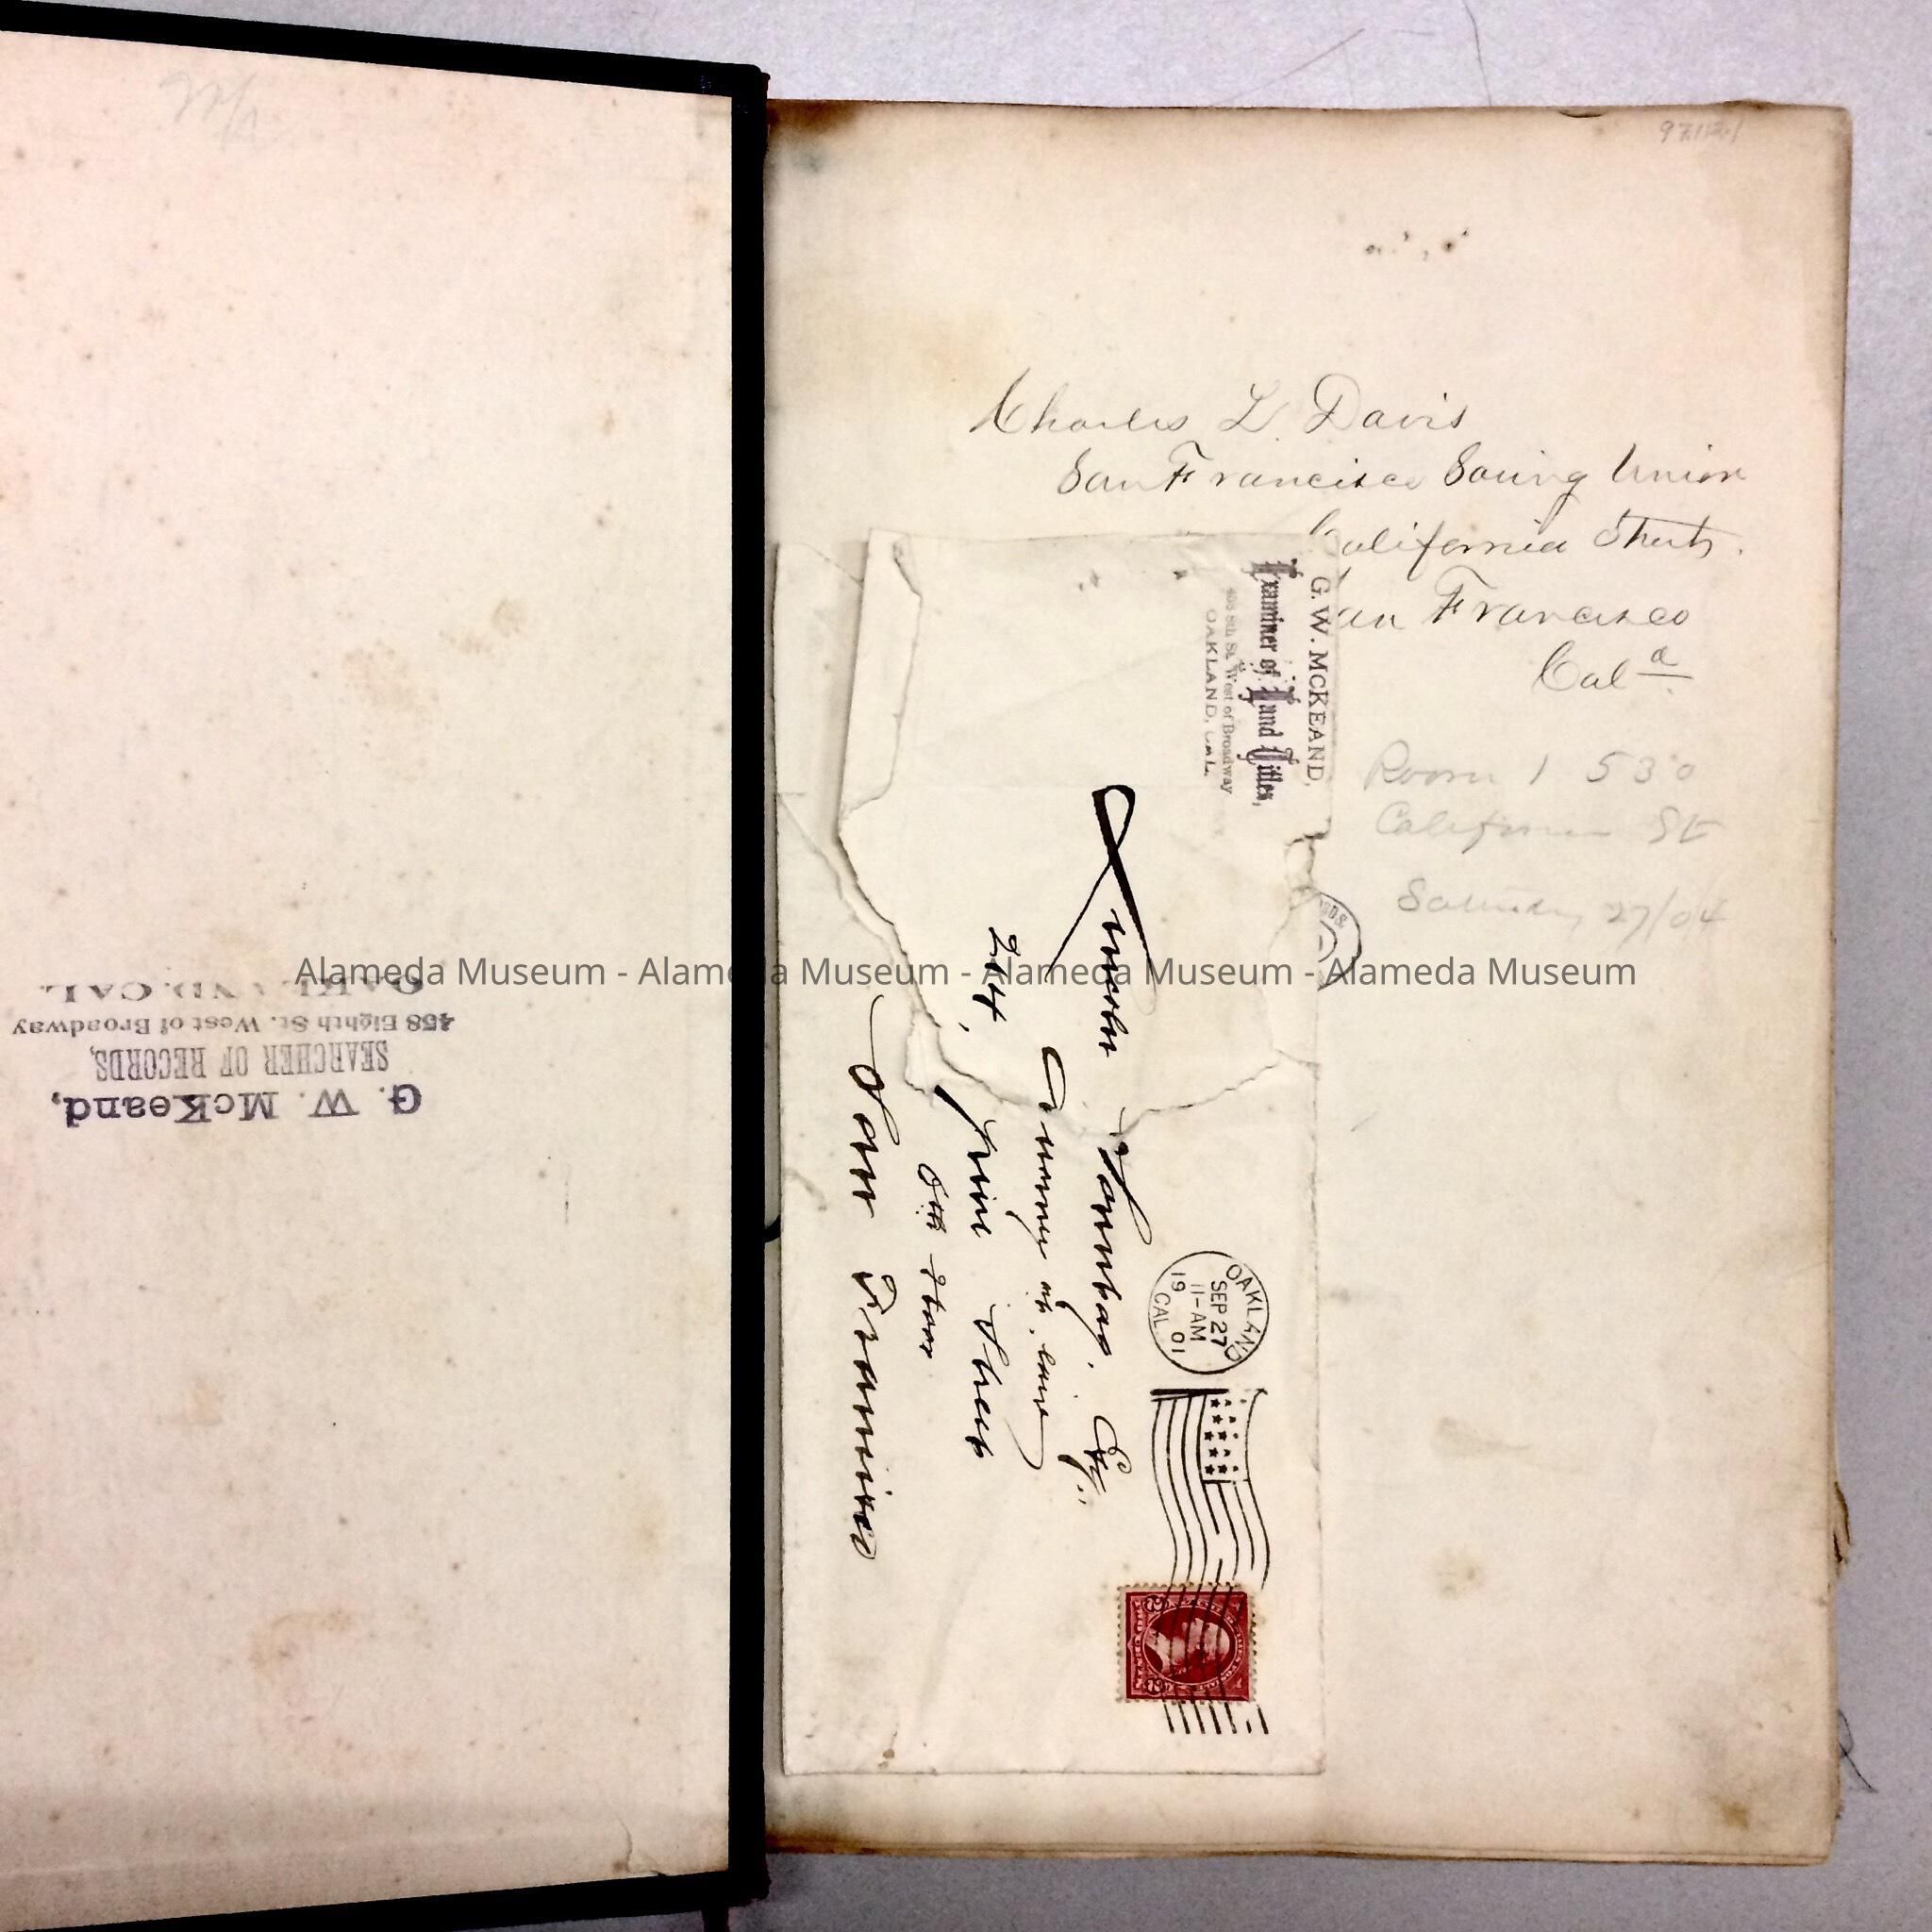 G. W. McKeand,
SEARCHER OF RECORDS,
458 Eighth St. West of Broadway
OAKLAND, CAL.
Charles L. Davis
San Francisco Saving Union
California Street.
San Francisco
Cal a
Room 1 530
California St
Saturday 27/04
G. W. MCKEAND,
Examiner of Land Titles,
8th St. West of Broadway
OAKLAND, CAL.
OAKLAND
SEP 27
11-AM
19 01
CAL
Lincoln Sonntag, Esq.
Attorney at law
214, Pine Street
San Francisco
Alameda Museum - Alameda Museum - Alameda Museum - Alameda Museum